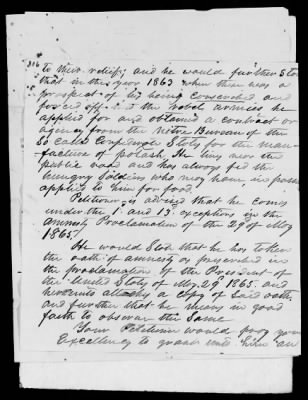 316
to their relief; and he would further Stat
that in the year 1863 when there was a
prospect of his being Conscribed and
forced off into the rebel armies he
applied for and obtained a contract or
agency from the Nitre Bureau of the
So Called Confederate States for the man-
facture of potash. He lives near the
public road and has always fed the
hungry Soldiers who may have, in passing
applied to him for food.
Petitioner is advised that he comes
under the 1. and 13. exceptions in the
Amnesty Proclamation of the 29 of May
1865.
He would Stat that he has taken
the oath of amnesty as prescribed in
the proclamation of the President of
the United States of May 29 1865. and
herewith attaches a Copy of said oath,
and further that he means in good
faith to observe the Same
Your Petitioner would pray your
Excellency to grant unto him an